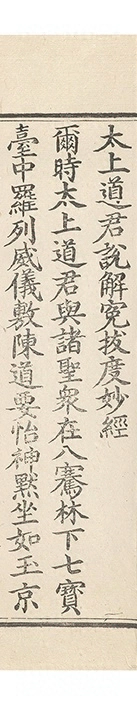 太上道君說解冤拔度妙經
爾時太上道君與諸聖衆在八騫林下七寶
臺中羅列威儀敷陳道要怡神默坐如玉京